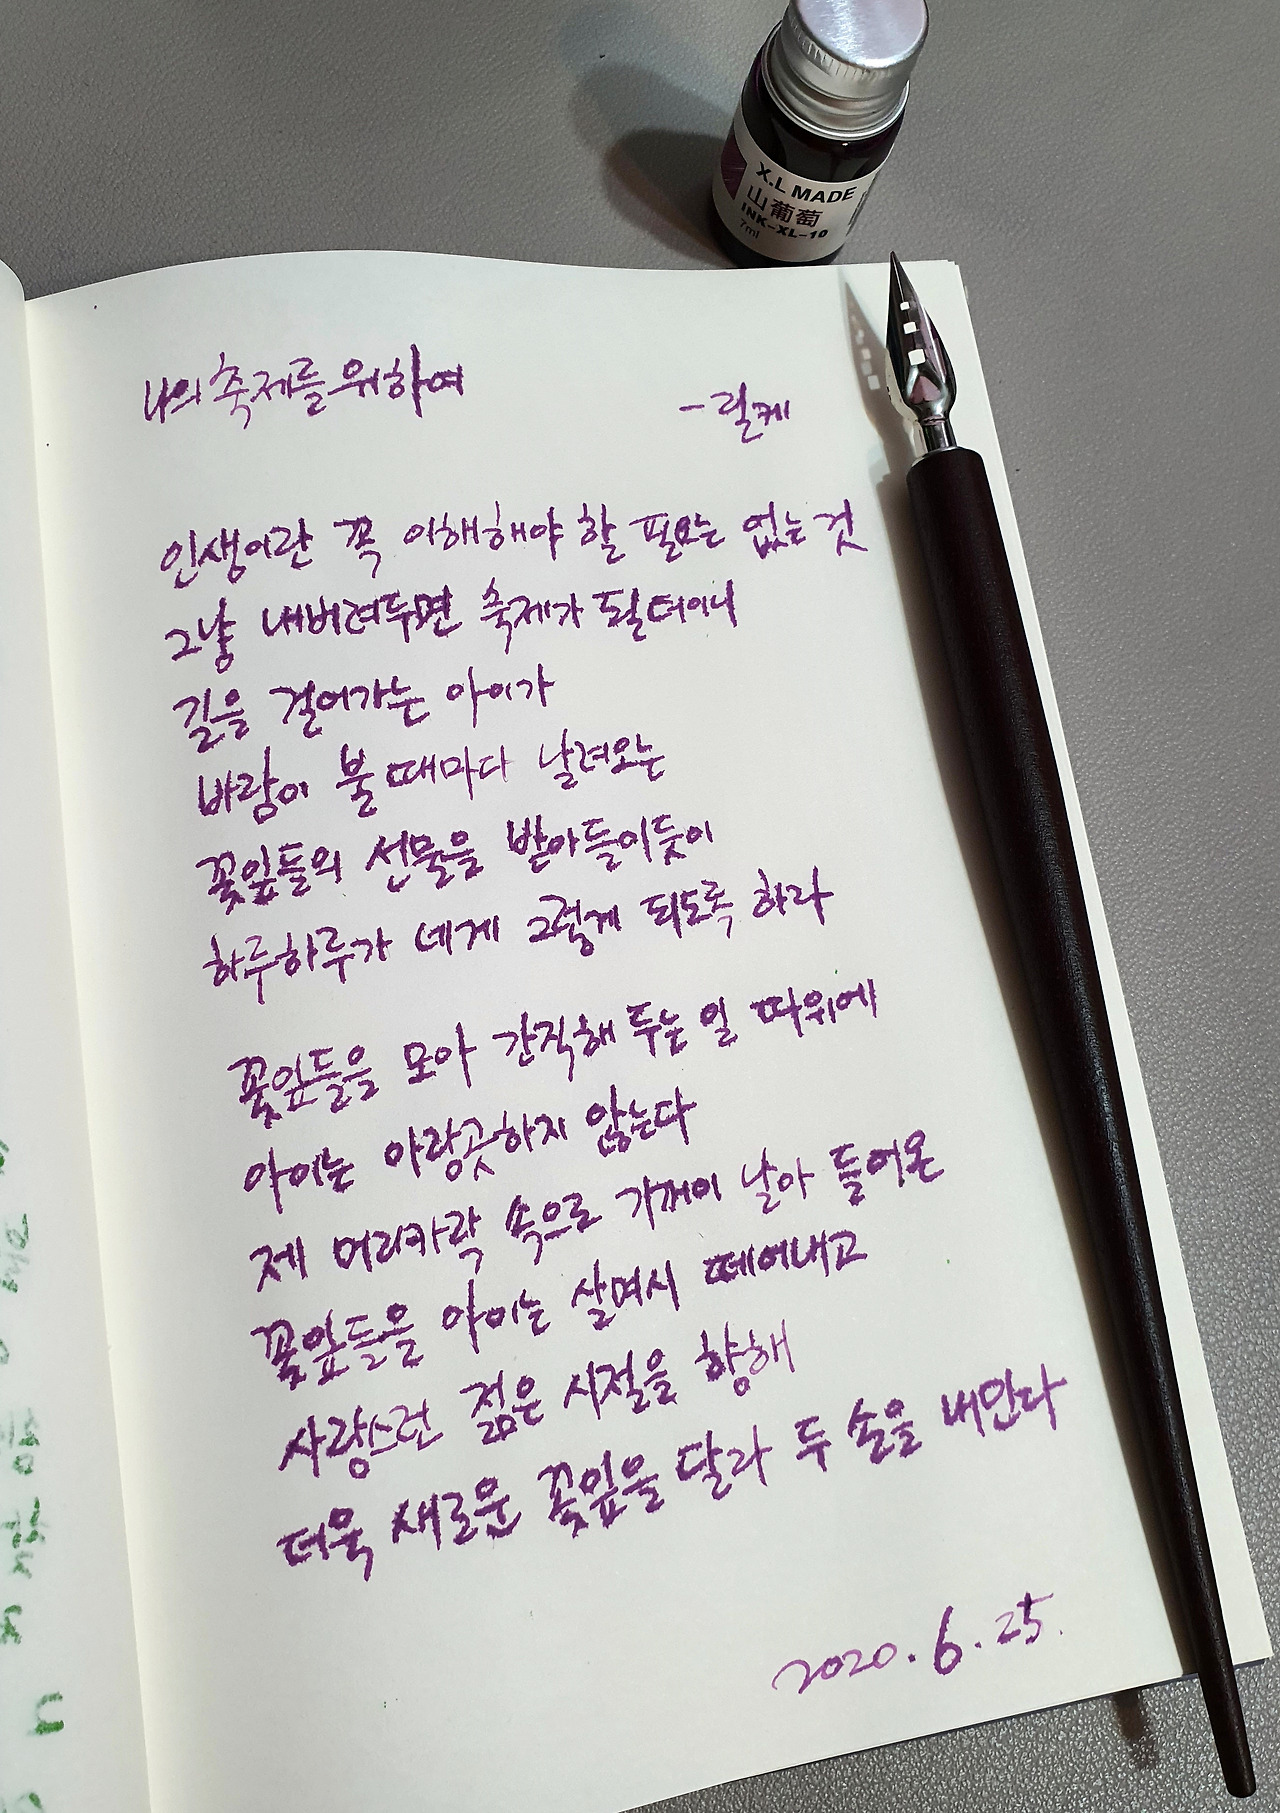 X.L MADE
山葡萄
INK-XL-10
7ml
나의 축제를 위하여
- 릴케
인생이란 꼭 이해해야 할 필요는 없는 것
그냥 내버려두면 축제가 될 터이니
길을 걸어가는 아이가
바람이 불 때마다 날려오는
꽃잎들의 선물을 받아들이듯이
하루하루가 네게 그렇게 되도록 하라
꽃잎들을 모아 간직해 두는 일 따위에
아이는 아랑곳하지 않는다
제 머리카락 속으로 기꺼이 날아 들어온
꽃잎들을 아이는 살며시 떼어내고
사랑스런 젊은 시절을 향해
더욱 새로운 꽃잎을 달라 두 손을 내민다
2020. 6. 25.